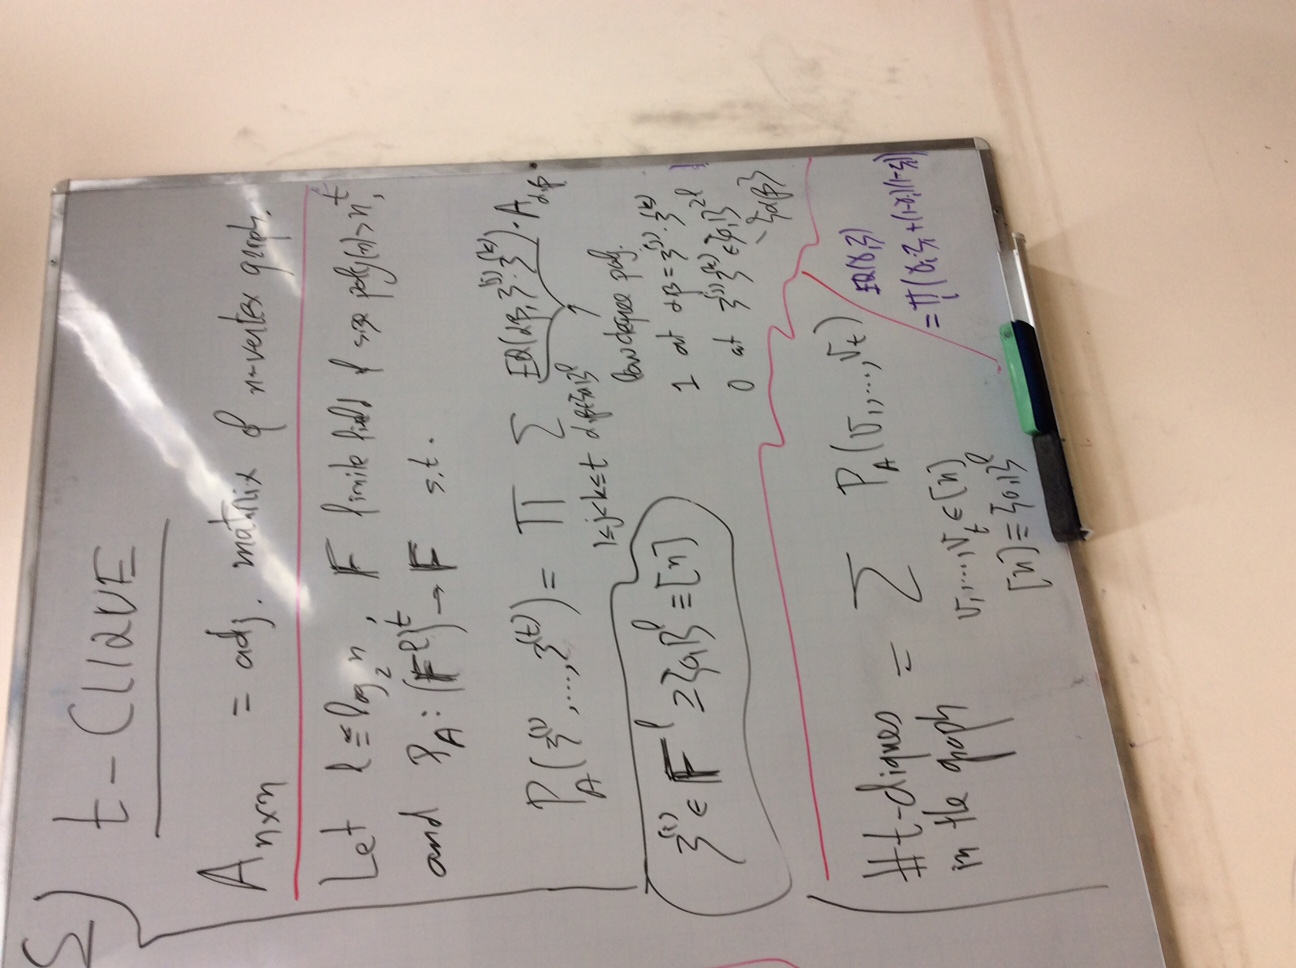 Σ) t-CLIQUE
A_{n×n} = adj. matrix of n-vertex graph.
Let l ≡ log_2 n, 𝔽 finite field of size poly(n) > n^t,
and P_A : (𝔽^l)^t → 𝔽 s.t.
P_A(ξ^{(1)}, ..., ξ^{(t)}) = Π_{1≤j<k≤t} Σ_{α,β∈{0,1}^l} EQ(αβ, ξ^{(j)}·ξ^{(k)}) · A_{αβ}
low degree poly.
1 at αβ = ξ^{(j)}·ξ^{(k)}
0 at ξ^{(j)}ξ^{(k)} ∈ {0,1}^{2l}
- {αβ}
ξ^{(i)} ∈ 𝔽^l ⊇ {0,1}^l ≡ [n]
#t-cliques in the graph = Σ_{v_1,...,v_t ∈ [n]} P_A(v_1, ..., v_t)
[n] ≡ {0,1}^l
EQ(γ, ξ)
= Π_i (γ_i ξ_i + (1-γ_i)(1-ξ_i))